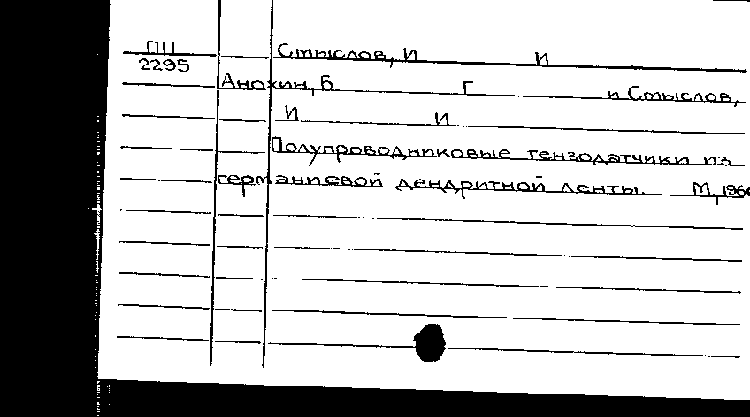 ПП
Стыслов, И И
2295
Анохин, Б Г и Стыслов,
И И
Полупроводниковые тензодатчики из
германиевой дендритной ленты. М, 196